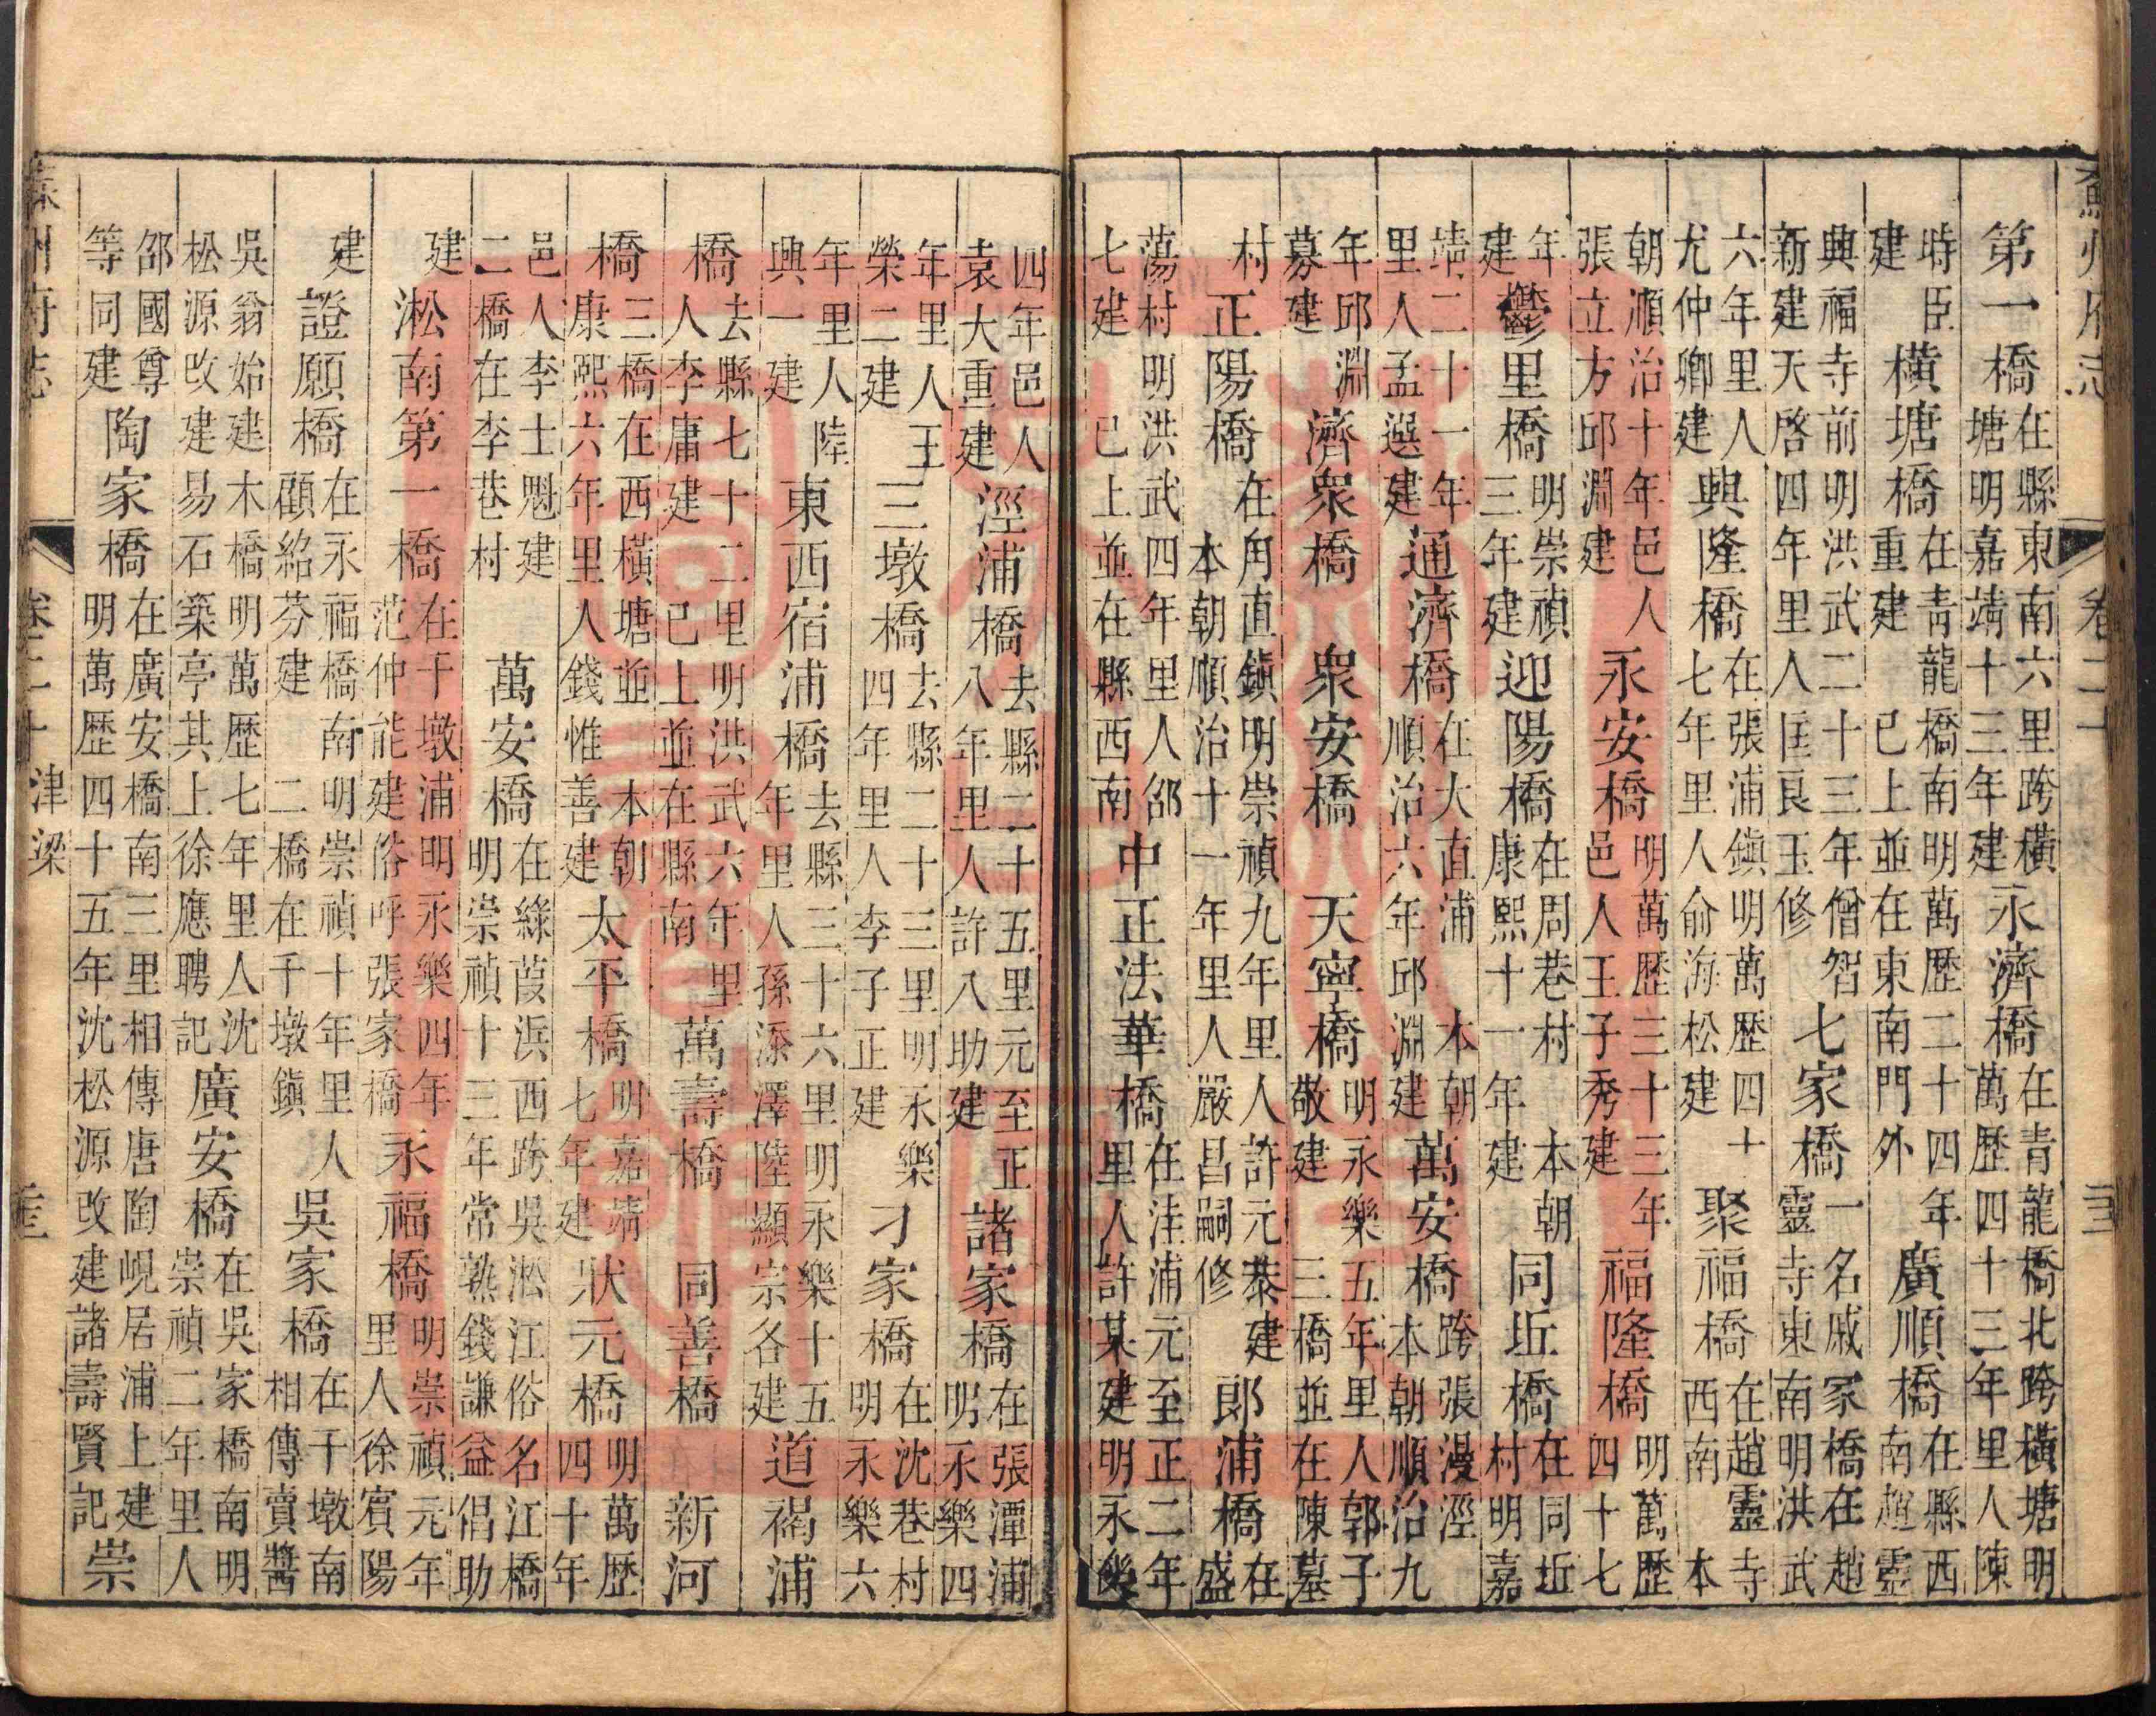 蘇州府志 卷二十 三
第一橋在縣東南六里跨橫塘明嘉靖十三年建永濟橋在青龍橋北跨橫塘明萬歷四十三年里人陳
時臣建橫塘橋在青龍橋南明萬歷二十四年重建 已上並在東南門外廣順橋在縣西南趙靈
興福寺前明洪武二十三年僧智新建天啓四年里人匡良玉修七家橋一名戚冢橋在趙靈寺東南明洪武
六年里人尤仲卿建興隆橋在張浦鎮明萬歷四十七年里人俞海松建聚福橋在趙靈寺西南本
朝順治十年邑人張立方邱淵建永安橋明萬歷三十三年邑人王子秀建福隆橋明萬歷四十七
年建鬱里橋明崇禎三年建迎陽橋在周巷村 本朝康熙十一年建同坵橋在同坵村明嘉
靖二十一年里人孟選建通濟橋在大直浦 本朝順治六年邱淵建萬安橋跨張漫涇本朝順治九
年邱淵募建濟衆橋 衆安橋 天寧橋明永樂五年里人郭子敬建 三橋並在陳墓
村 正陽橋在角直鎮明崇禎九年里人許元恭建本朝順治十一年里人嚴昌嗣修郎浦橋在盛
蕩村明洪武四年里人邰七建 已上並在縣西南中正法華橋在洼浦元至正二年里人許某建明永
四年邑人袁大重建涇浦橋去縣二十五里元至正八年里人許八助建諸家橋在張潭浦明永樂四
年里人王榮二建三墩橋去縣二十三里明永樂四年里人李子正建刁家橋在沈巷村明永樂六
年里人陸興一建東西宿浦橋去縣三十六里明永樂十五年里人孫添澤陸顯宗各建道褐浦
橋去縣七十二里明洪武六年里人李庸建 已上並在縣南萬壽橋 同善橋 新河
橋三橋在西橫塘並 本朝康熙六年里人錢惟善建太平橋明嘉靖七年建狀元橋明萬歷四十年
邑人李士魁建二橋在李巷村萬安橋在綠葭浜西跨吳淞江俗名江橋明崇禎十三年常熟錢謙益倡助
建 淞南第一橋在千墩浦明永樂四年范仲能建俗呼張家橋永福橋明崇禎元年里人徐賓陽
建 證願橋在永福橋南明崇禎十年里人顧紹芬建 二橋在千墩鎮吳家橋在千墩南相傳賣醬
吳翁始建木橋明萬歷七年里人沈松源改建易石築亭其上徐應聘記廣安橋在吳家橋南明崇禎二年里人
邰國尊等同建陶家橋在廣安橋南三里相傳唐陶峴居浦上建明萬歷四十五年沈松源改建諸壽賢記崇
蘇州府志 卷二十 津梁